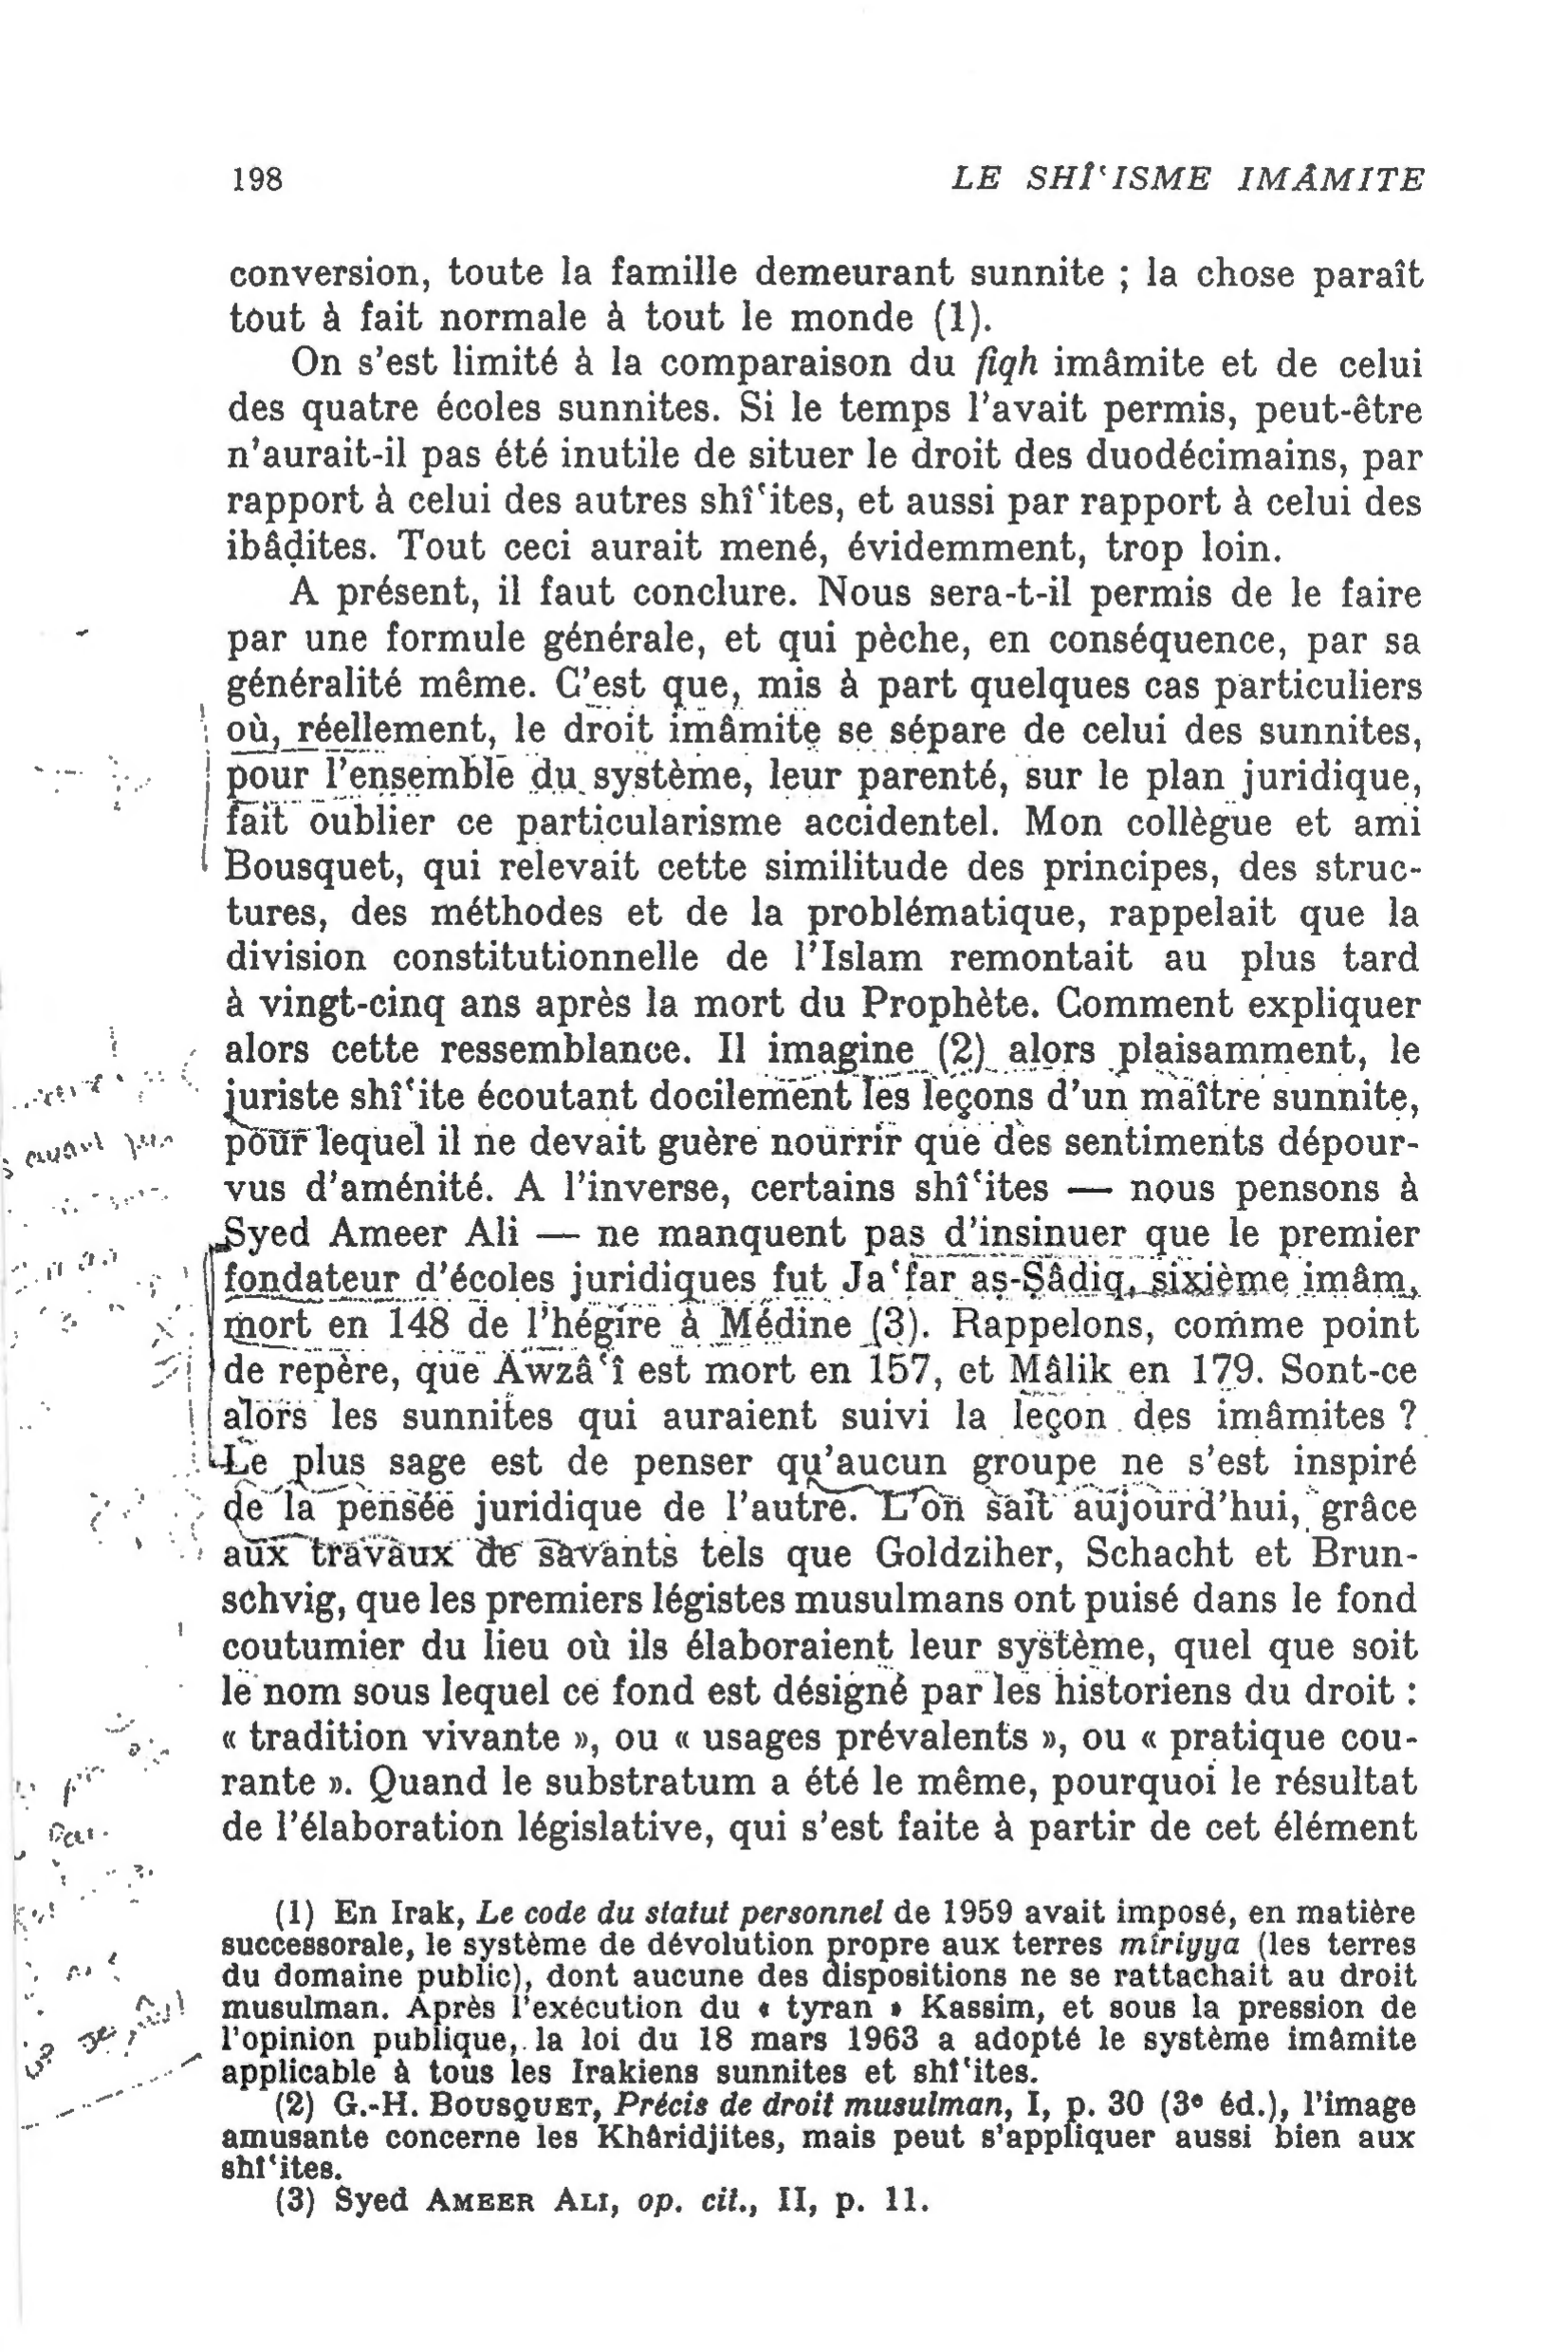 198 LE SHÎ‘ISME IMÂMITE
conversion, toute la famille demeurant sunnite ; la chose paraît
tout à fait normale à tout le monde (1).
On s’est limité à la comparaison du fiqh imâmite et de celui
des quatre écoles sunnites. Si le temps l’avait permis, peut-être
n’aurait-il pas été inutile de situer le droit des duodécimains, par
rapport à celui des autres shî‘ites, et aussi par rapport à celui des
ibâḍites. Tout ceci aurait mené, évidemment, trop loin.
A présent, il faut conclure. Nous sera-t-il permis de le faire
par une formule générale, et qui pèche, en conséquence, par sa
généralité même. C’est que, mis à part quelques cas particuliers
où, réellement, le droit imâmite se sépare de celui des sunnites,
pour l’ensemble du système, leur parenté, sur le plan juridique,
fait oublier ce particularisme accidentel. Mon collègue et ami
Bousquet, qui relevait cette similitude des principes, des struc-
tures, des méthodes et de la problématique, rappelait que la
division constitutionnelle de l’Islam remontait au plus tard
à vingt-cinq ans après la mort du Prophète. Comment expliquer
alors cette ressemblance. Il imagine (2) alors plaisamment, le
juriste shî‘ite écoutant docilement les leçons d’un maître sunnite,
pour lequel il ne devait guère nourrir que des sentiments dépour-
vus d’aménité. A l’inverse, certains shî‘ites — nous pensons à
Syed Ameer Ali — ne manquent pas d’insinuer que le premier
fondateur d’écoles juridiques fut Ja‘far aṣ-Ṣâdiq, sixième imâm,
mort en 148 de l’hégire à Médine (3). Rappelons, comme point
de repère, que Awzâ‘î est mort en 157, et Mâlik en 179. Sont-ce
alors les sunnites qui auraient suivi la leçon des imâmites ?
Le plus sage est de penser qu’aucun groupe ne s’est inspiré
de la pensée juridique de l’autre. L’on sait aujourd’hui, grâce
aux travaux de savants tels que Goldziher, Schacht et Brun-
schvig, que les premiers légistes musulmans ont puisé dans le fond
coutumier du lieu où ils élaboraient leur système, quel que soit
le nom sous lequel ce fond est désigné par les historiens du droit :
« tradition vivante », ou « usages prévalents », ou « pratique cou-
rante ». Quand le substratum a été le même, pourquoi le résultat
de l’élaboration législative, qui s’est faite à partir de cet élément
(1) En Irak, Le code du statut personnel de 1959 avait imposé, en matière
successorale, le système de dévolution propre aux terres mîriyya (les terres
du domaine public), dont aucune des dispositions ne se rattachait au droit
musulman. Après l’exécution du « tyran » Kassim, et sous la pression de
l’opinion publique, la loi du 18 mars 1963 a adopté le système imâmite
applicable à tous les Irakiens sunnites et shî‘ites.
(2) G.-H. BOUSQUET, Précis de droit musulman, I, p. 30 (3e éd.), l’image
amusante concerne les Khâridjites, mais peut s’appliquer aussi bien aux
shî‘ites.
(3) Syed AMEER ALI, op. cit., II, p. 11.